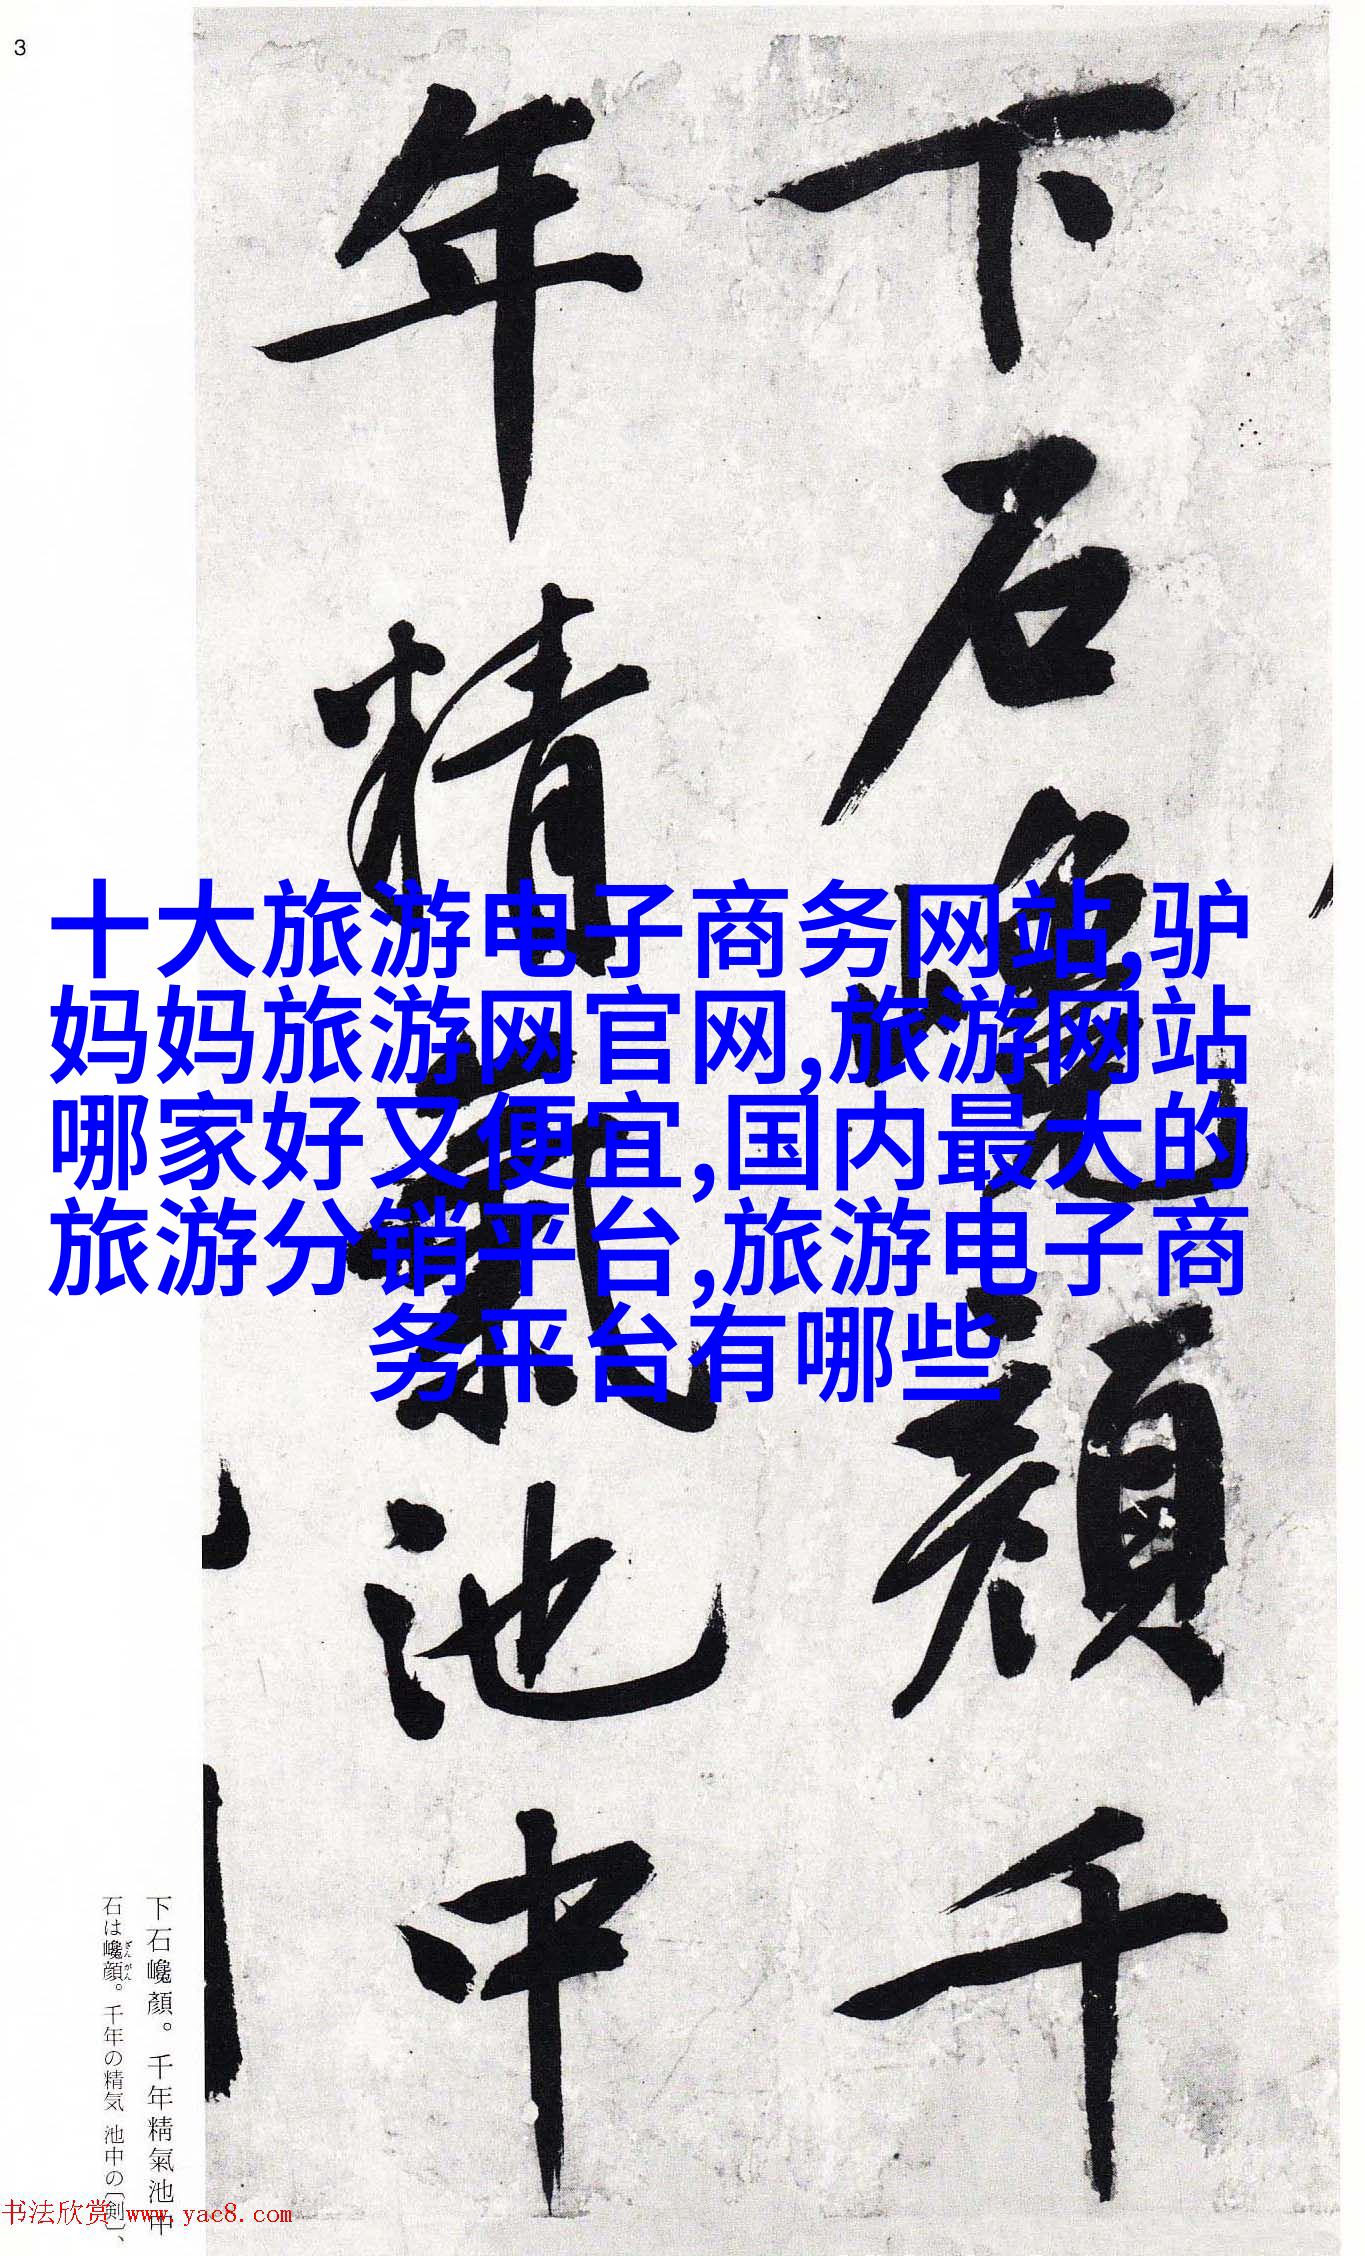 3
下石巉顏千
年精氣池中
十大旅游电子商务网站,驴
妈妈旅游网官网,旅游网站
哪家好又便宜,国内最大的
旅游分销平台,旅游电子商
务平台有哪些
下石巉顏。千年精氣池中
石は巉顔。千年の精気 池中の〔剣〕、
ざんがん
书法欣赏 www.yac8.com